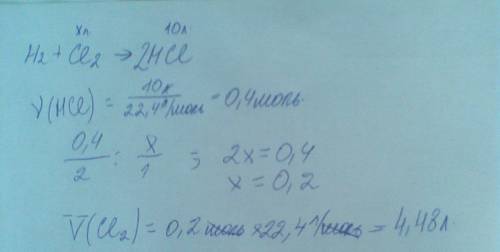 xл 10л
H₂ + Cl₂ → 2HCl
ν(HCl) = 10л / 22,4л/моль = 0,4 моль
0,4/2 : x/1 ; 2x = 0,4
x = 0,2
V(Cl₂) = 0,2 моль × 22,4 л/моль = 4,48л.